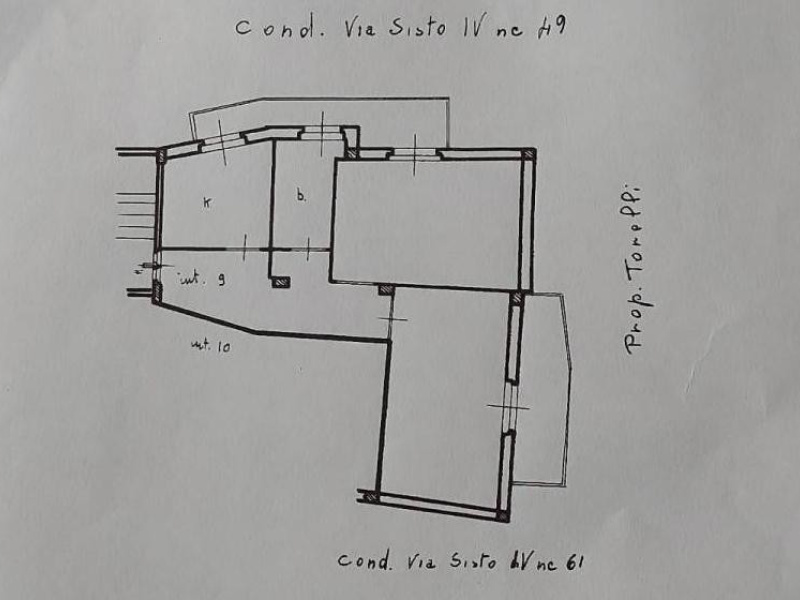 Cond. Via Sisto IV nc 49
k
b.
int. 9
int. 10
Prop. Tonelli
Cond. Via Sisto IV nc 61